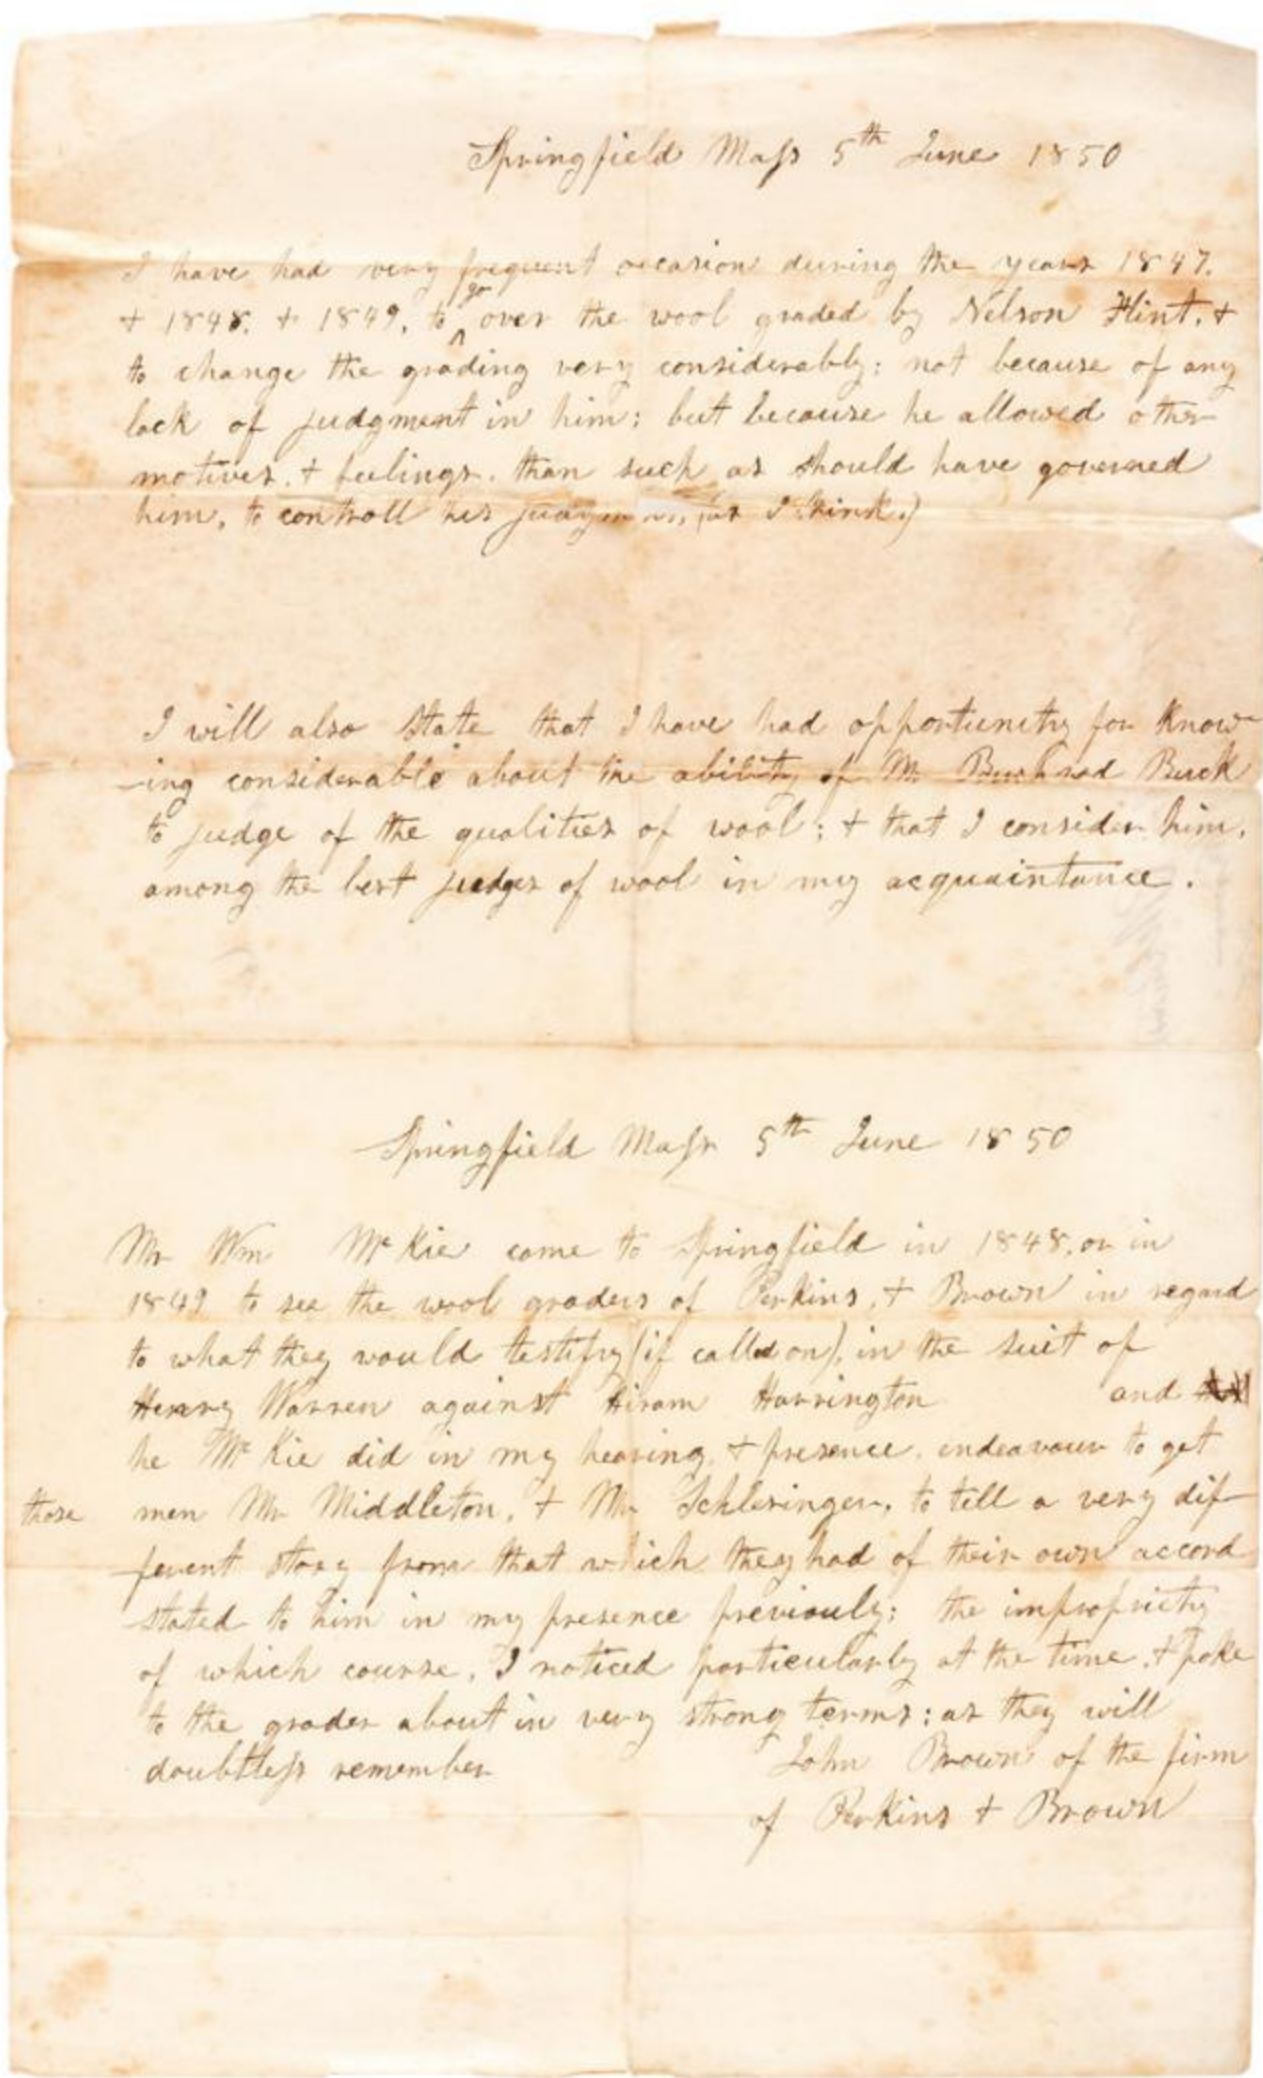 Springfield Mass 5th June 1850
I have had very frequent occasion during the years 1847.
+ 1848. + 1849, to go over the wool graded by Nelson Flint, +
to change the grading very considerably: not because of any
lack of judgment in him: but because he allowed other
motives, + feelings, than such as should have governed
him, to controll his judgment, (as I think.)
I will also state that I have had opportunity for know-
-ing considerable about the ability of Mr Buck
to judge of the qualities of wool; + that I consider him,
among the best judges of wool in my acquaintance.
Springfield Mass 5th June 1850
Mr Wm McKie came to Springfield in 1848, or in
1849 to see the wool graders of Perkins, + Brown in regard
to what they would testify (if called on), in the suit of
Henry Warren against Hiram Harrington and
he McKie did in my hearing, + presence, indeavour to get
those men Mr Middleton, + Mr Schlesinger, to tell a very dif-
-ferent story from that which they had of their own accord
stated to him in my presence previously; the impropriety
of which course, I noticed particularly at the time, + spoke
to the grader about in very strong terms; as they will
doubtless remember
John Brown of the firm
of Perkins + Brown